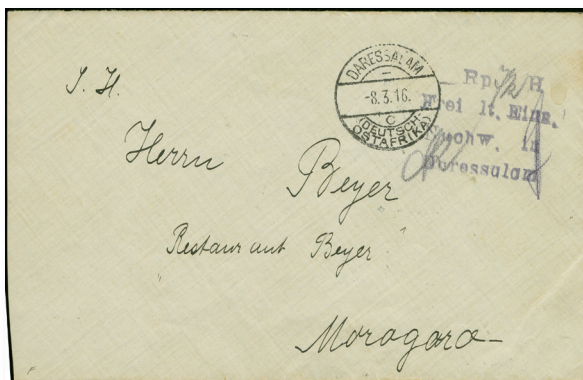 DARESSALAM
-8.3.16.
C
(DEUTSCH-
OSTAFRIKA)
Rp. 7½ H
Frei lt. Einn.
Nachw. in
Daressalam
S. H.
Herrn
Beyer
Restaurant Beyer
Morogoro